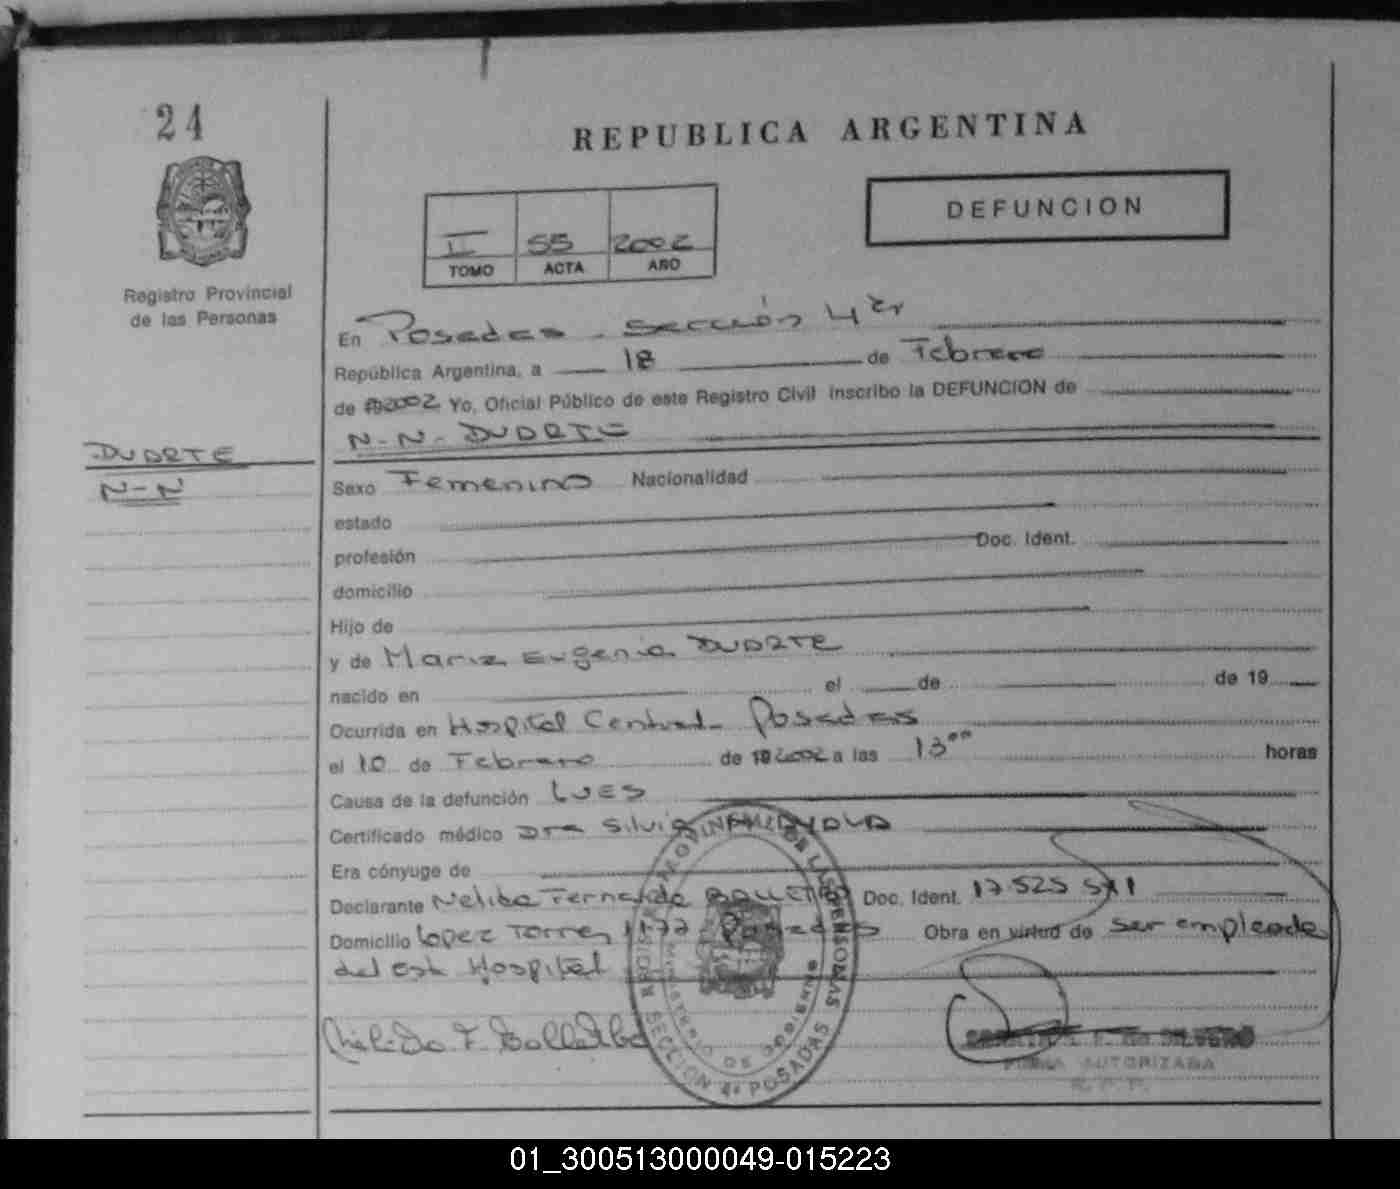 24
REPUBLICA ARGENTINA
DEFUNCION
II 55 2002
TOMO ACTA AÑO
Registro Provincial
de las Personas
En Posadas - sección 4ta
República Argentina, a 18 de Febrero
de 192002 Yo, Oficial Público de este Registro Civil inscribo la DEFUNCION de
N-N- DUARTE
DUARTE
N-N
Sexo Femenino Nacionalidad
estado
profesión Doc. Ident.
domicilio
Hijo de
y de Maria Eugenia DUARTE
nacido en el de de 19
Ocurrida en Hospital Central- Posadas
el 10 de Febrero de 192002 a las 13°° horas
Causa de la defunción LUES
Certificado médico Dra Silvia
Era cónyuge de
Declarante Nelida Fernanda Doc. Ident. 17.525.511
Domicilio Lopez Torres 1177 Posadas Obra en virtud de ser empleada
del Hospital
SECCION 4ª POSADAS
MINISTERIO DE GOBIERNO
FIRMA AUTORIZADA
R. P. P.
01_300513000049-015223